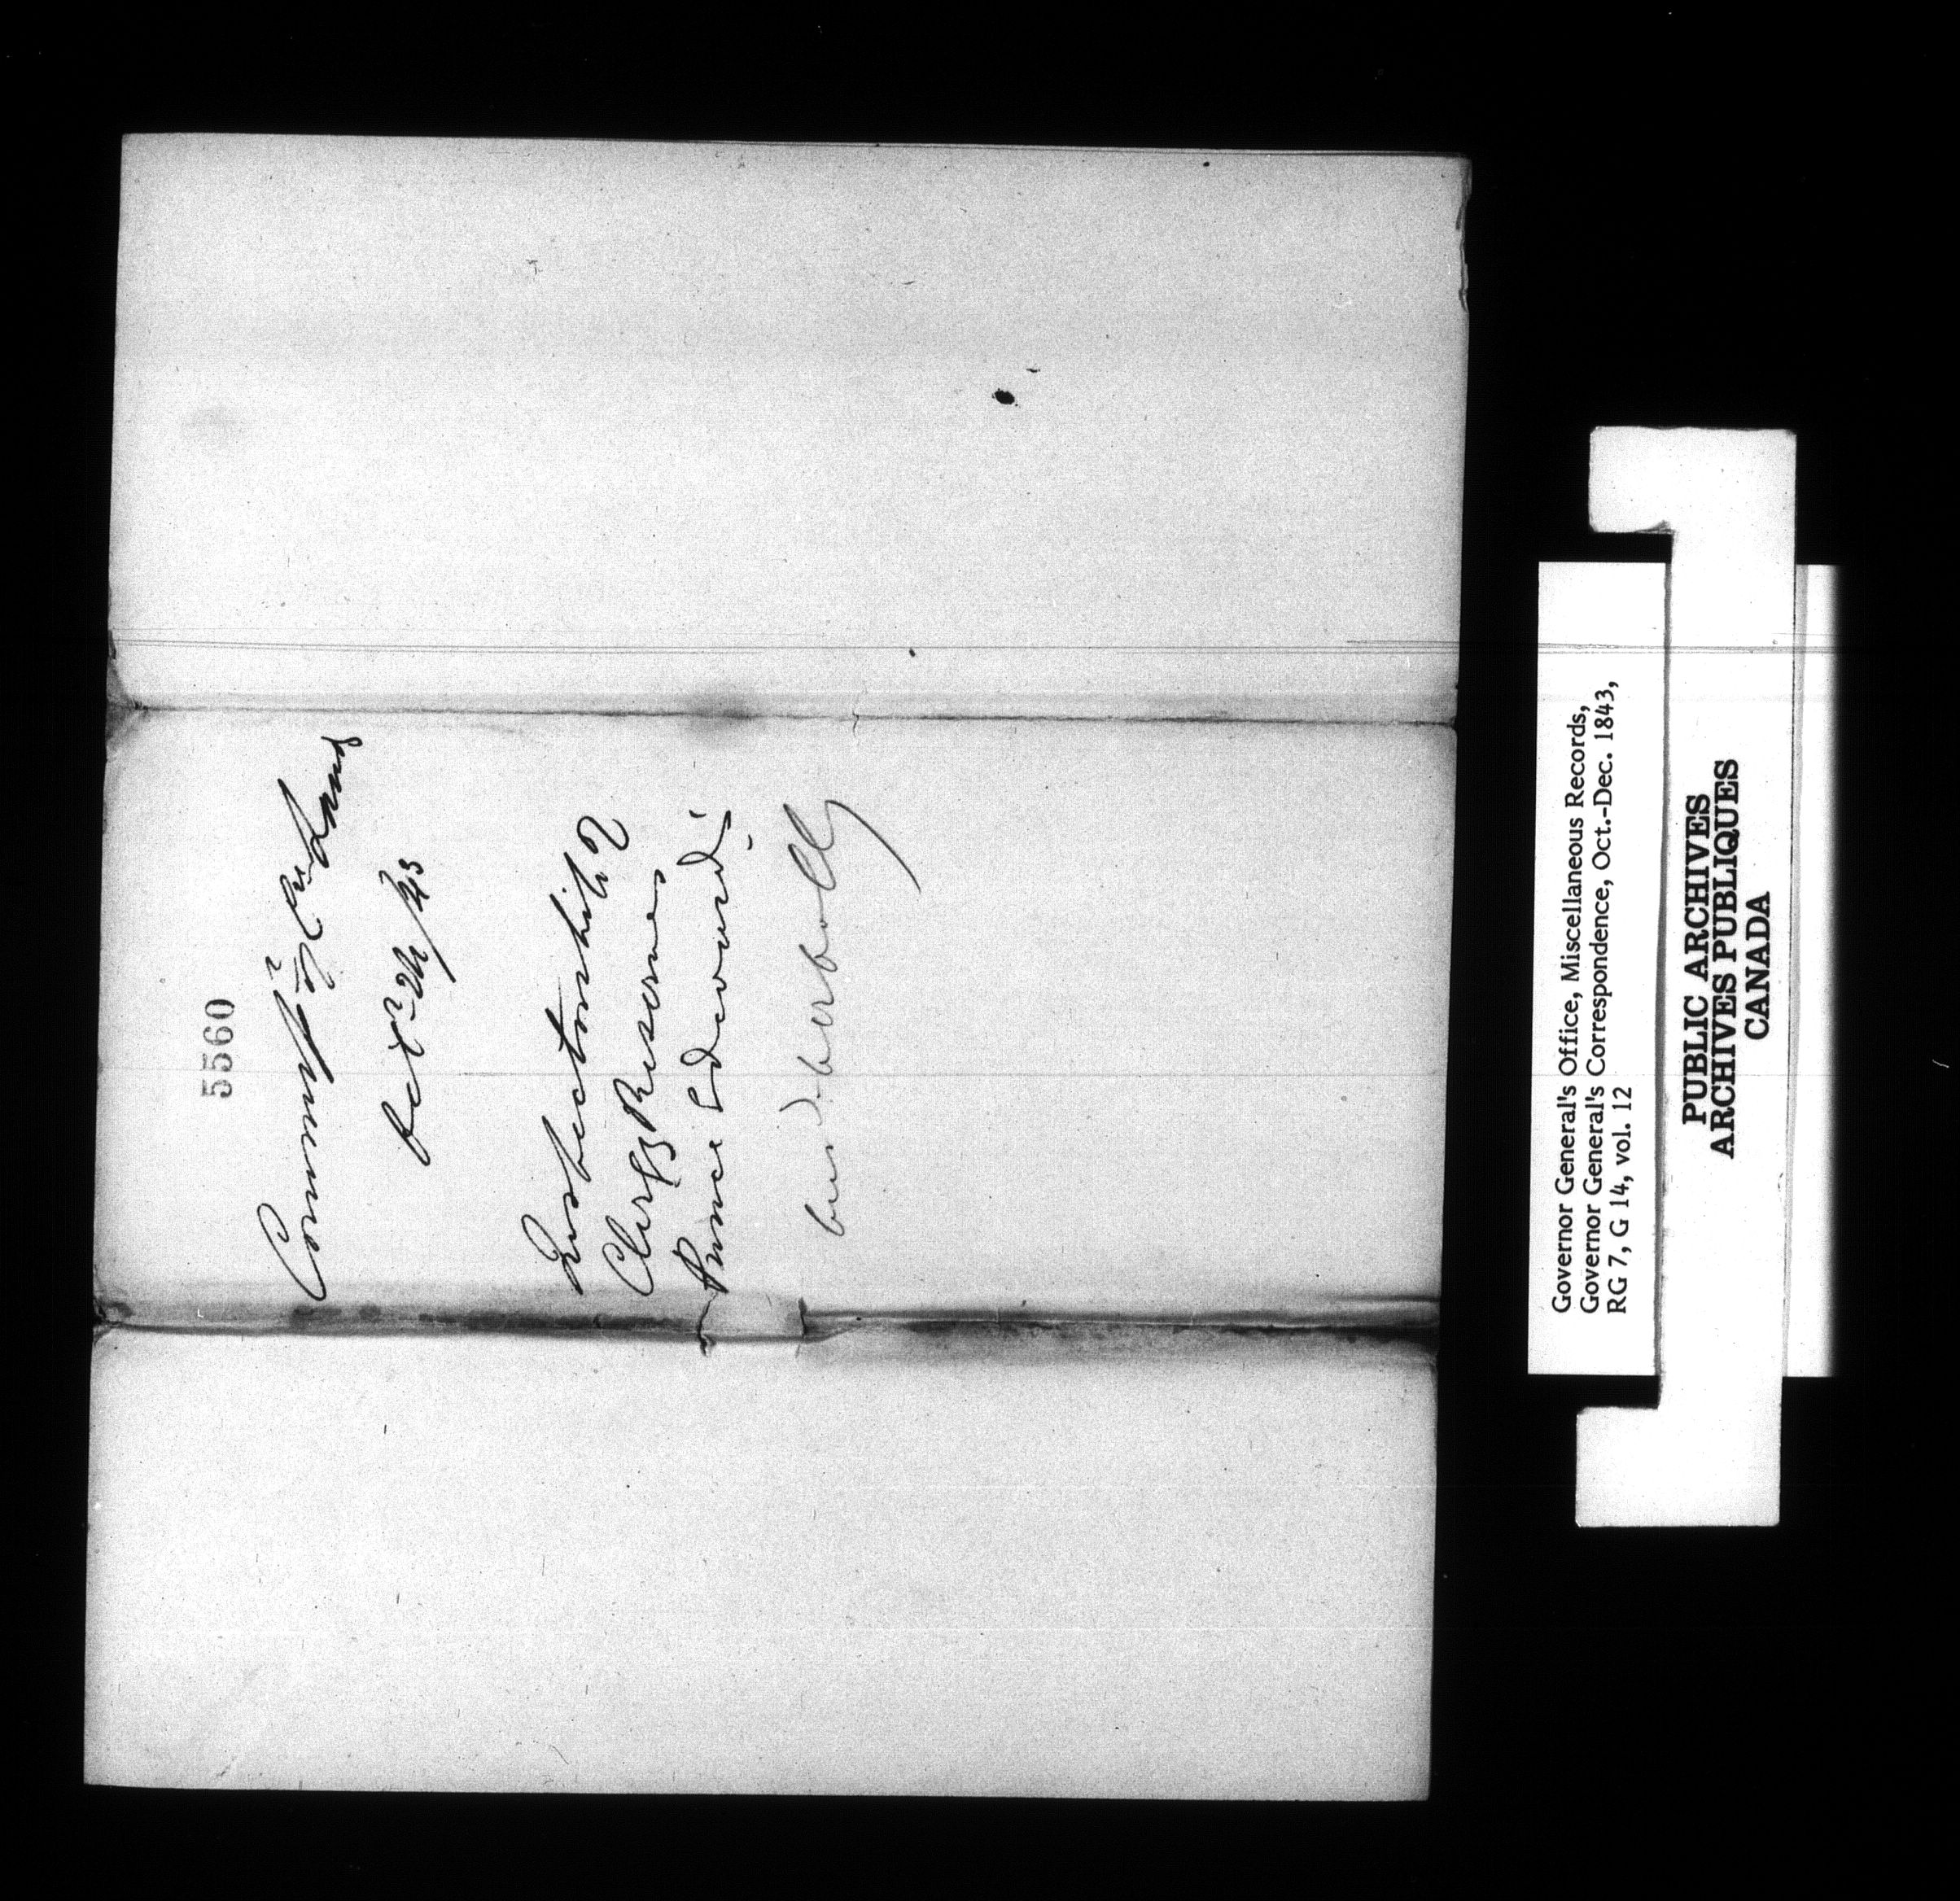 5560
Commr of Crown Lands
Oct 24/43
Inspectorship of
Clergy Reserves
Prince Edward
Governor General's Office, Miscellaneous Records,
Governor General's Correspondence, Oct.-Dec. 1843,
RG 7, G 14, vol. 12
PUBLIC ARCHIVES
ARCHIVES PUBLIQUES
CANADA